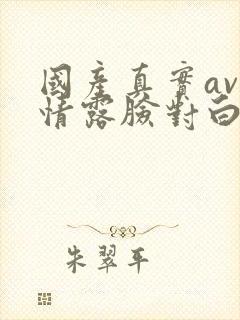 國產真實av
情露臉對白
朱翠平